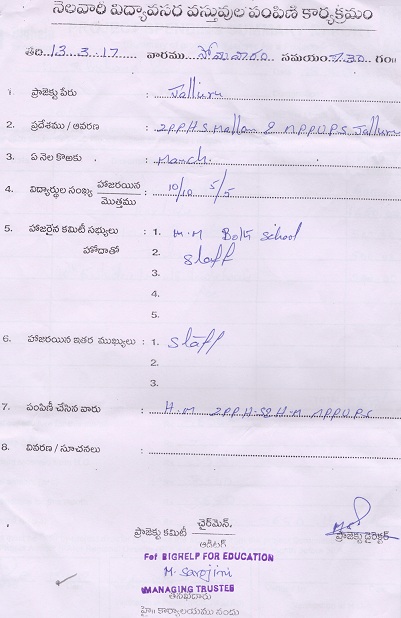 నెలవారీ విద్యావసర వస్తువుల పంపిణీ కార్యక్రమం
తేది. 13.3.17 వారము సోమవారం సమయం 9.30 గం॥
1. ప్రాజెక్టు పేరు : Jalluru
2. ప్రదేశము / ఆవరణ : ZPPHS Mallam & MPPUPS Jalluru
3. ఏ నెల కొఱకు : March
4. విద్యార్థుల సంఖ్య హాజరయిన / మొత్తము : 10/10 5/5
5. హాజరైన కమిటీ సభ్యులు : 1. H.M Both School
హోదాతో 2. Staff
3.
4.
5.
6. హాజరయిన ఇతర ముఖ్యులు : 1. Staff
2.
3.
7. పంపిణీ చేసిన వారు : H.M ZPPHS & H.M MPPUPS
8. వివరణ / సూచనలు :
ప్రాజెక్టు కమిటీ ఛైర్మెన్.
ప్రాజెక్టు డైరెక్టర్
ఆడిటర్
For BIGHELP FOR EDUCATION
M. Sarojini
MANAGING TRUSTEE
హై॥ కార్యాలయము నందు